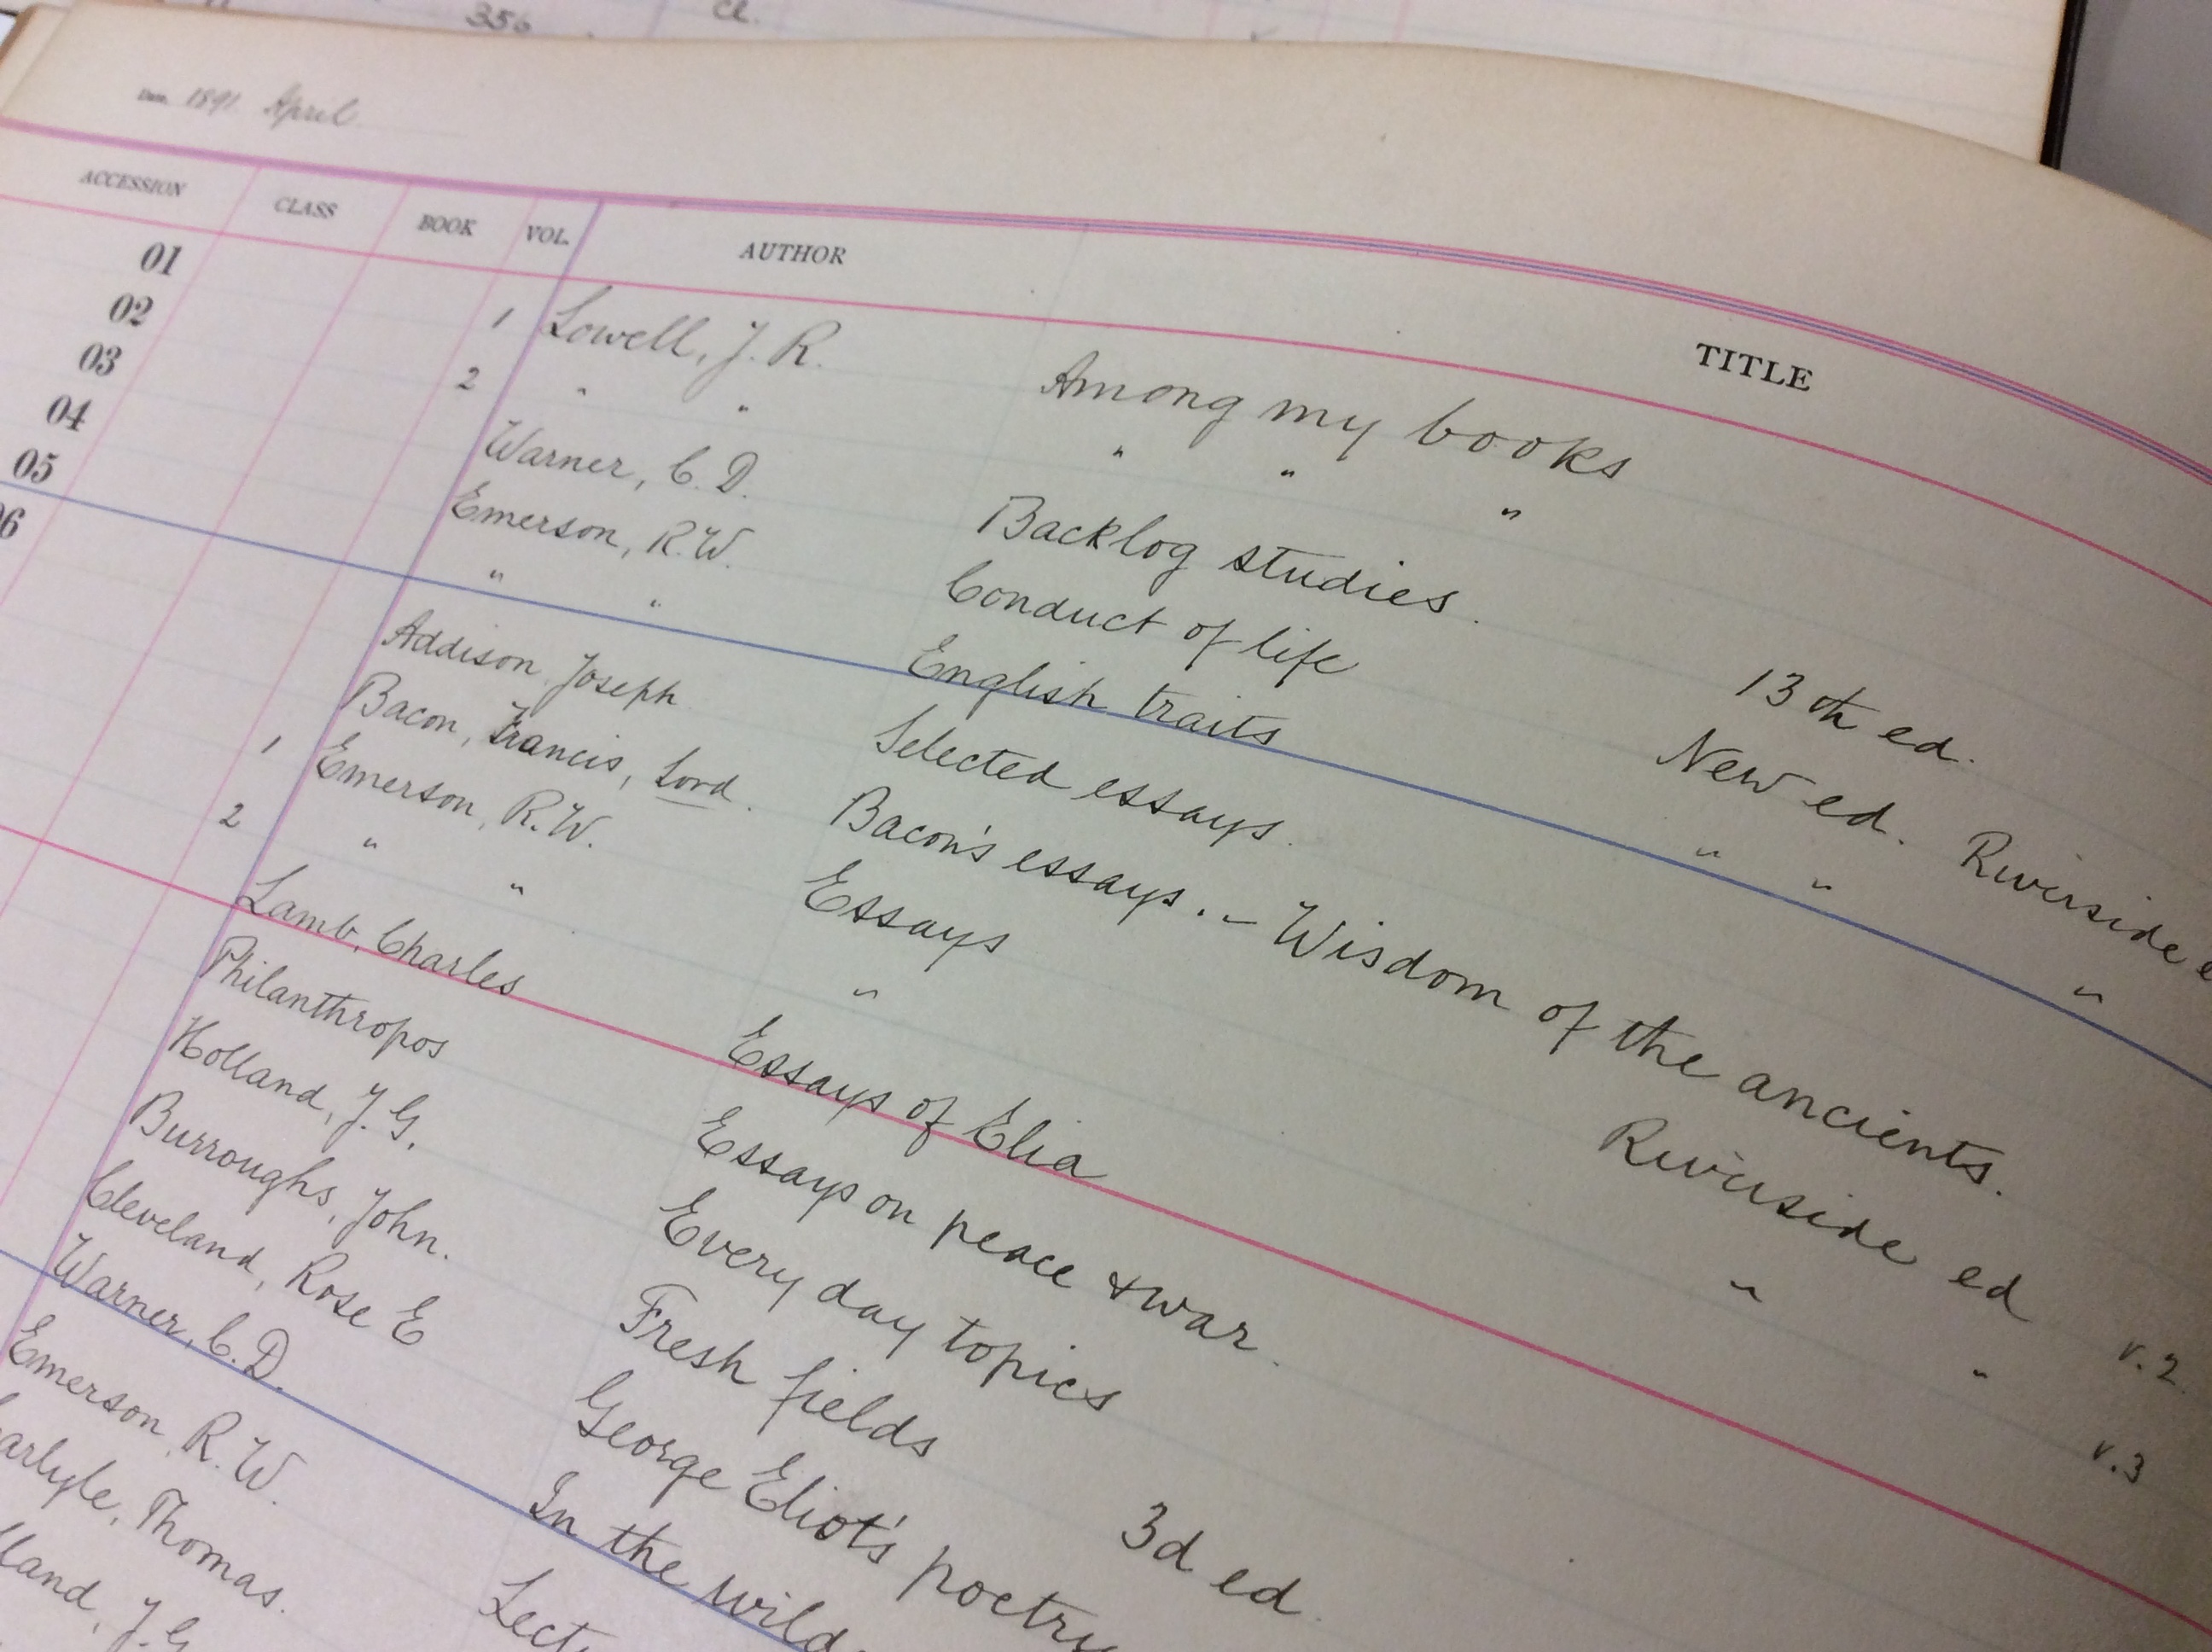 356 cl.
Date, 1891 April
ACCESSION CLASS BOOK VOL. AUTHOR TITLE
01 1 Lowell, J. R. Among my books
02 2 " " " " "
03 Warner, C. D. Backlog studies. 13th ed.
04 Emerson, R. W. Conduct of life New ed. Riverside e
05 " " English traits " " "
06 Addison Joseph Selected essays.
Bacon, Francis, Lord. Bacon's essays. – Wisdom of the ancients.
1 Emerson, R. W. Essays Riverside ed v. 2.
2 " " " " " v. 3
Lamb, Charles Essays of Elia
Philanthropos Essays on peace & war.
Holland, J. G. Every day topics
Burroughs, John. Fresh fields 3d ed.
Cleveland, Rose E George Eliot's poetry
Warner, C. D. In the wild
Emerson, R. W. Lect
arlyle, Thomas.
lland, J. G